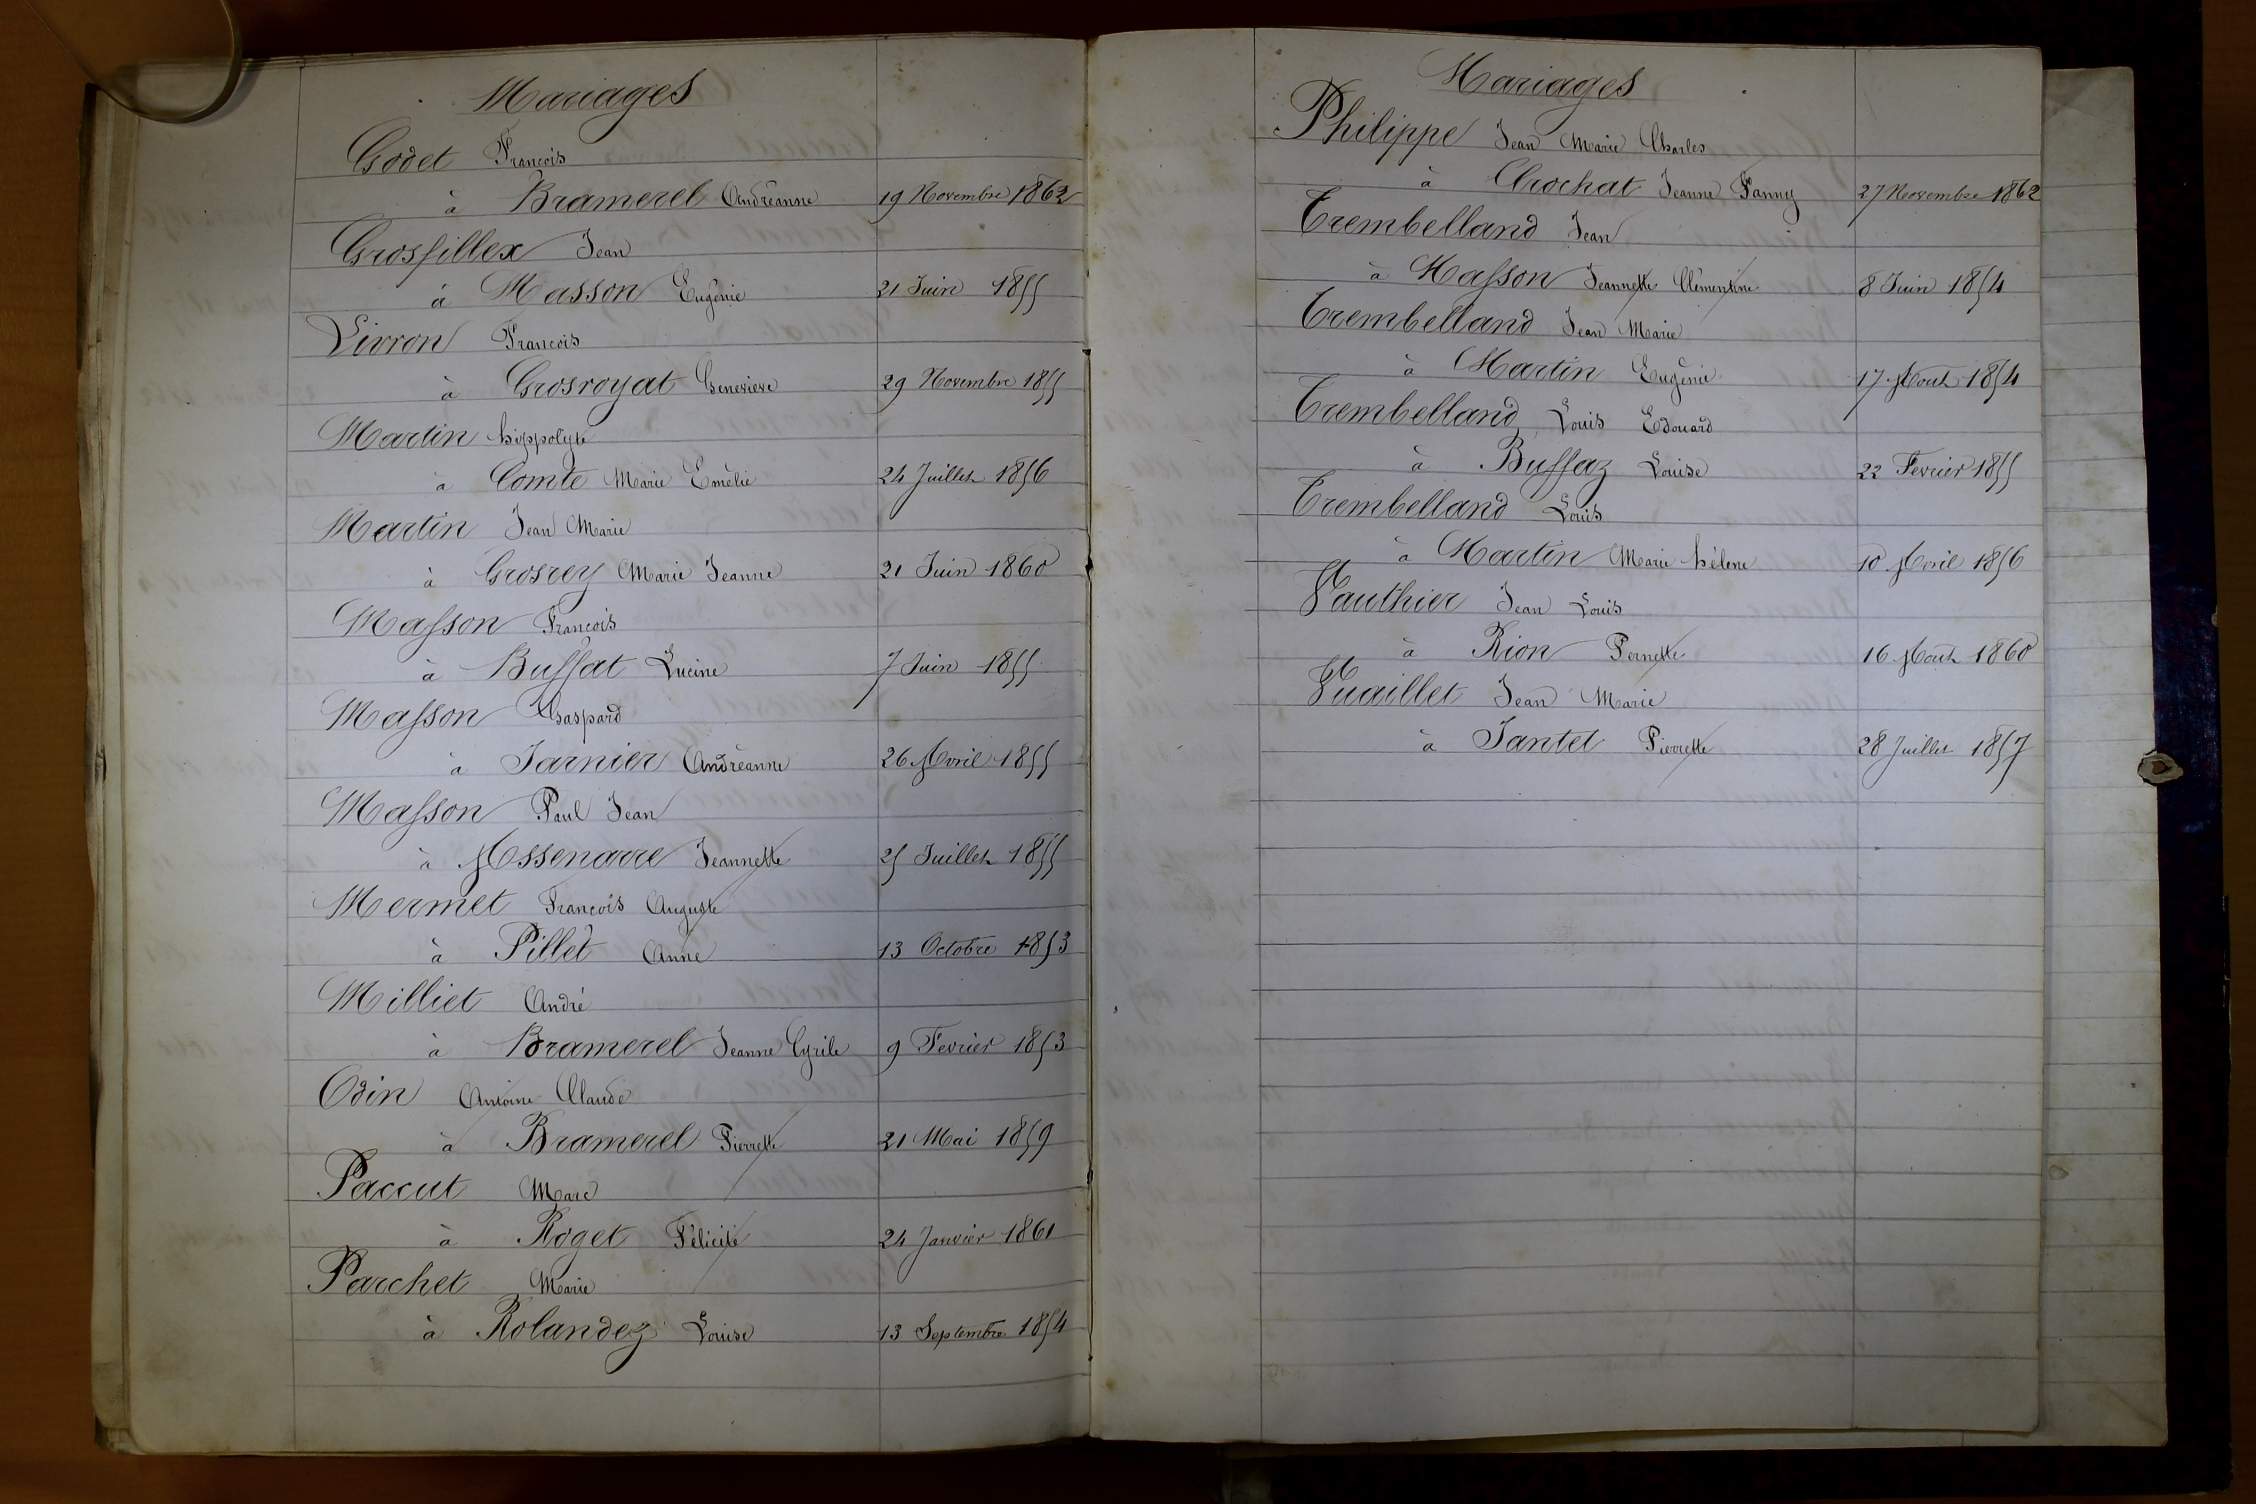 Mariages
Godet François
à Bramerel Andréanne 19 Novembre 1862
Grosfillex Jean
à Masson Eugénie 21 Juin 1855
Livron François
à Grosroyat Geneviève 29 Novembre 1855
Martin hippolyte
à Comte Marie Emélie 24 Juillet 1856
Martin Jean Marie
à Grosrey Marie Jeanne 21 Juin 1860
Masson François
à Buffat Lucine 7 Juin 1855
Masson Gaspard
à Jarnier Andréanne 26 Avril 1855
Masson Paul Jean
à Assenarre Jeannette 25 Juillet 1855
Mermet François Auguste
à Pillet Anne 13 Octobre 1853
Milliet André
à Bramerel Jeanne Cyrile 9 Fevrier 1853
Odin Antoine Claude
à Bramerel Pierrette 21 Mai 1859
Paccut Marc
à Roget Félicité 24 Janvier 1861
Parchet Marie
à Rolandez Louise 13 Septembre 1854
Mariages
Philippe Jean Marie Charles
à Crochat Jeanne Fanny 27 Novembre 1862
Trembelland Jean
à Masson Jeannette Clémentine 8 Juin 1854
Trembelland Jean Marie
à Martin Eugénie 17 Aout 1854
Trembelland Louis Edouard
à Buffaz Louise 22 Fevrier 1855
Trembelland Louis
à Martin Marie hélene 10 Avril 1856
Vauthier Jean Louis
à Rion Pernette 16 Aout 1860
Vuaillet Jean Marie
à Jantet Pierrette 28 Juillet 1857